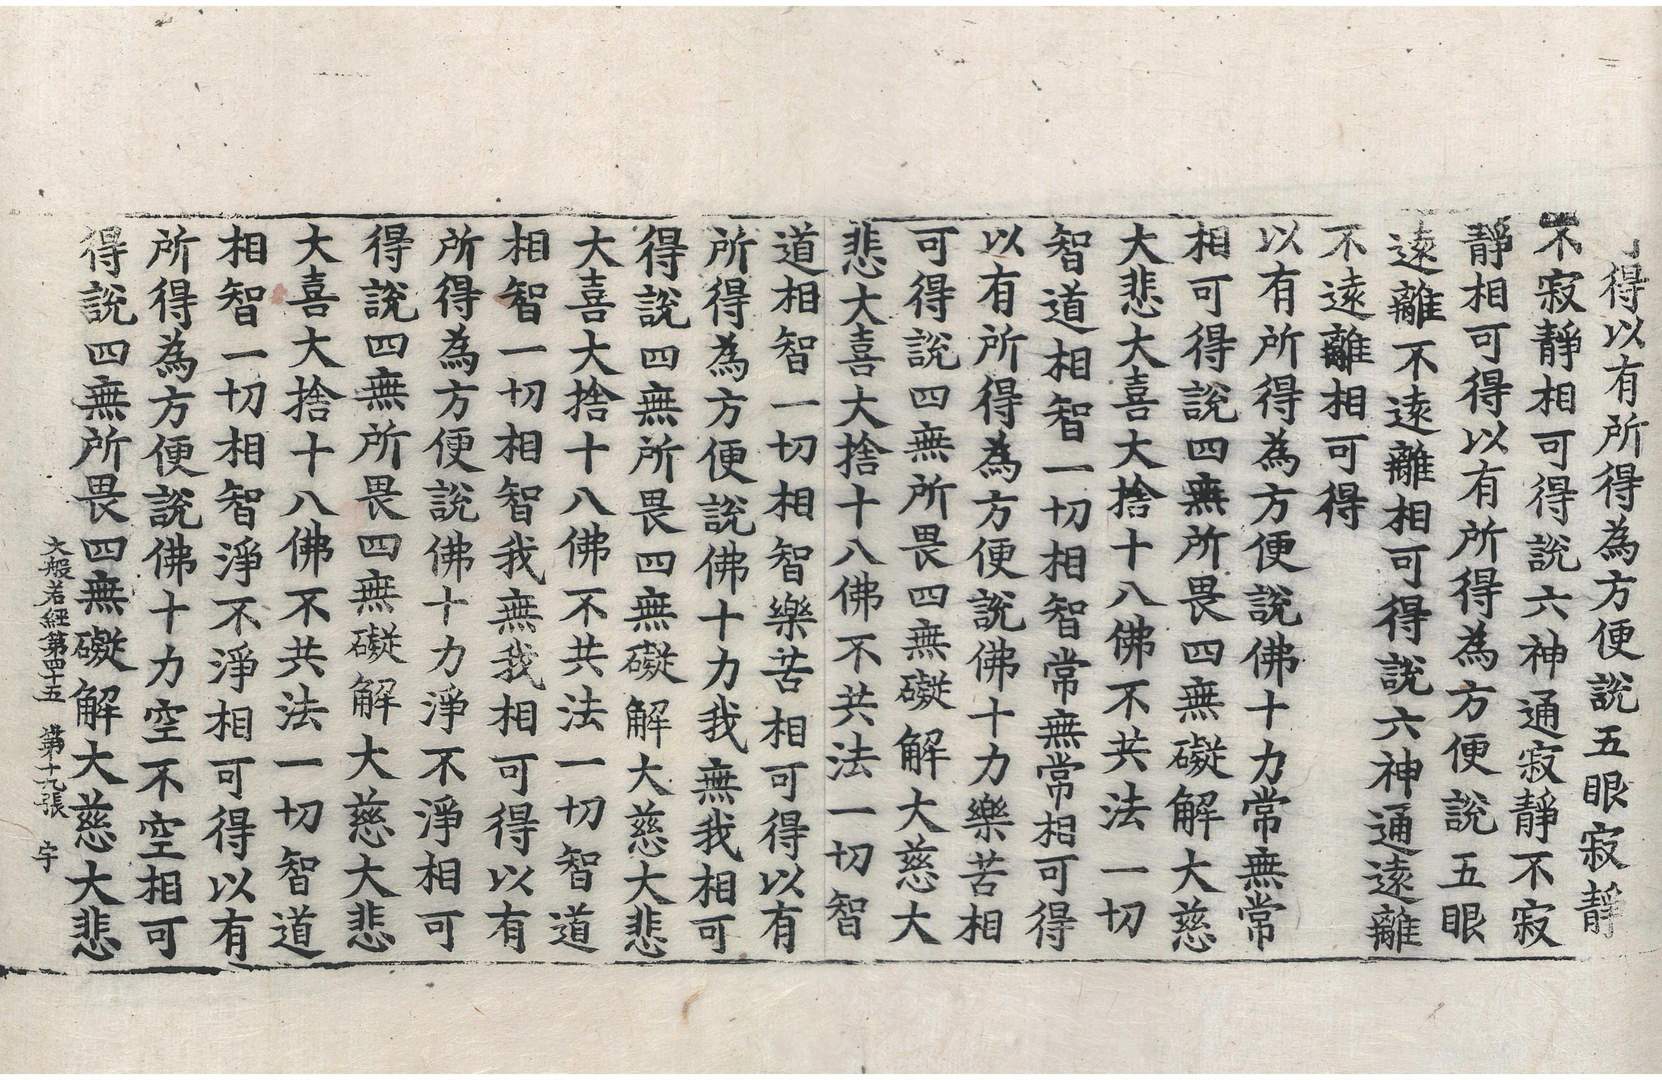 得以有所得為方便說五眼寂靜
不寂靜相可得說六神通寂靜不寂
靜相可得以有所得為方便說五眼
遠離不遠離相可得說六神通遠離
不遠離相可得
以有所得為方便說佛十力常無常
相可得說四無所畏四無礙解大慈
大悲大喜大捨十八佛不共法一切
智道相智一切相智常無常相可得
以有所得為方便說佛十力樂苦相
可得說四無所畏四無礙解大慈大
悲大喜大捨十八佛不共法一切智
道相智一切相智樂苦相可得以有
所得為方便說佛十力我無我相可
得說四無所畏四無礙解大慈大悲
大喜大捨十八佛不共法一切智道
相智一切相智我無我相可得以有
所得為方便說佛十力淨不淨相可
得說四無所畏四無礙解大慈大悲
大喜大捨十八佛不共法一切智道
相智一切相智淨不淨相可得以有
所得為方便說佛十力空不空相可
得說四無所畏四無礙解大慈大悲
大般若經第四十五 第十九張 宇